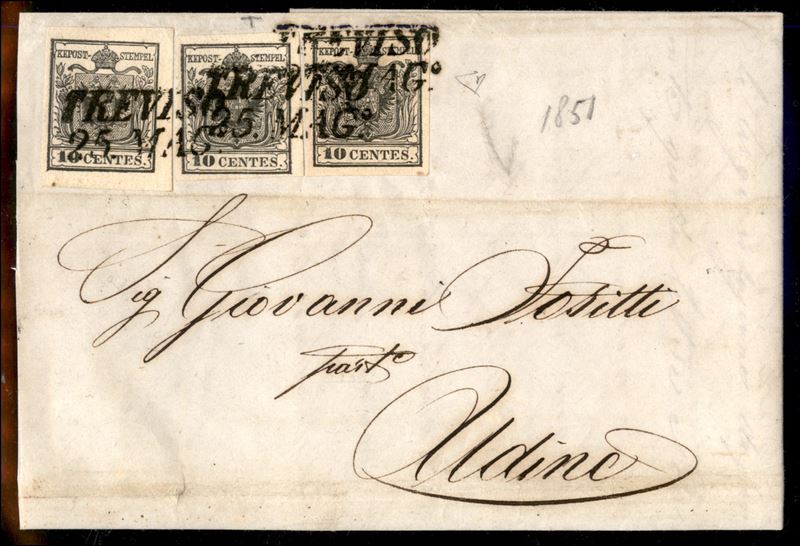 KKPOST-STEMPEL KKPOST-STEMPEL
10 CENTES. 10 CENTES. 10 CENTES.
TREVISO
25. MAG.º
TREVISO
25. MAG.º
TREVISO
MAG.º
1851
Sig Giovanni Tositti
Udine